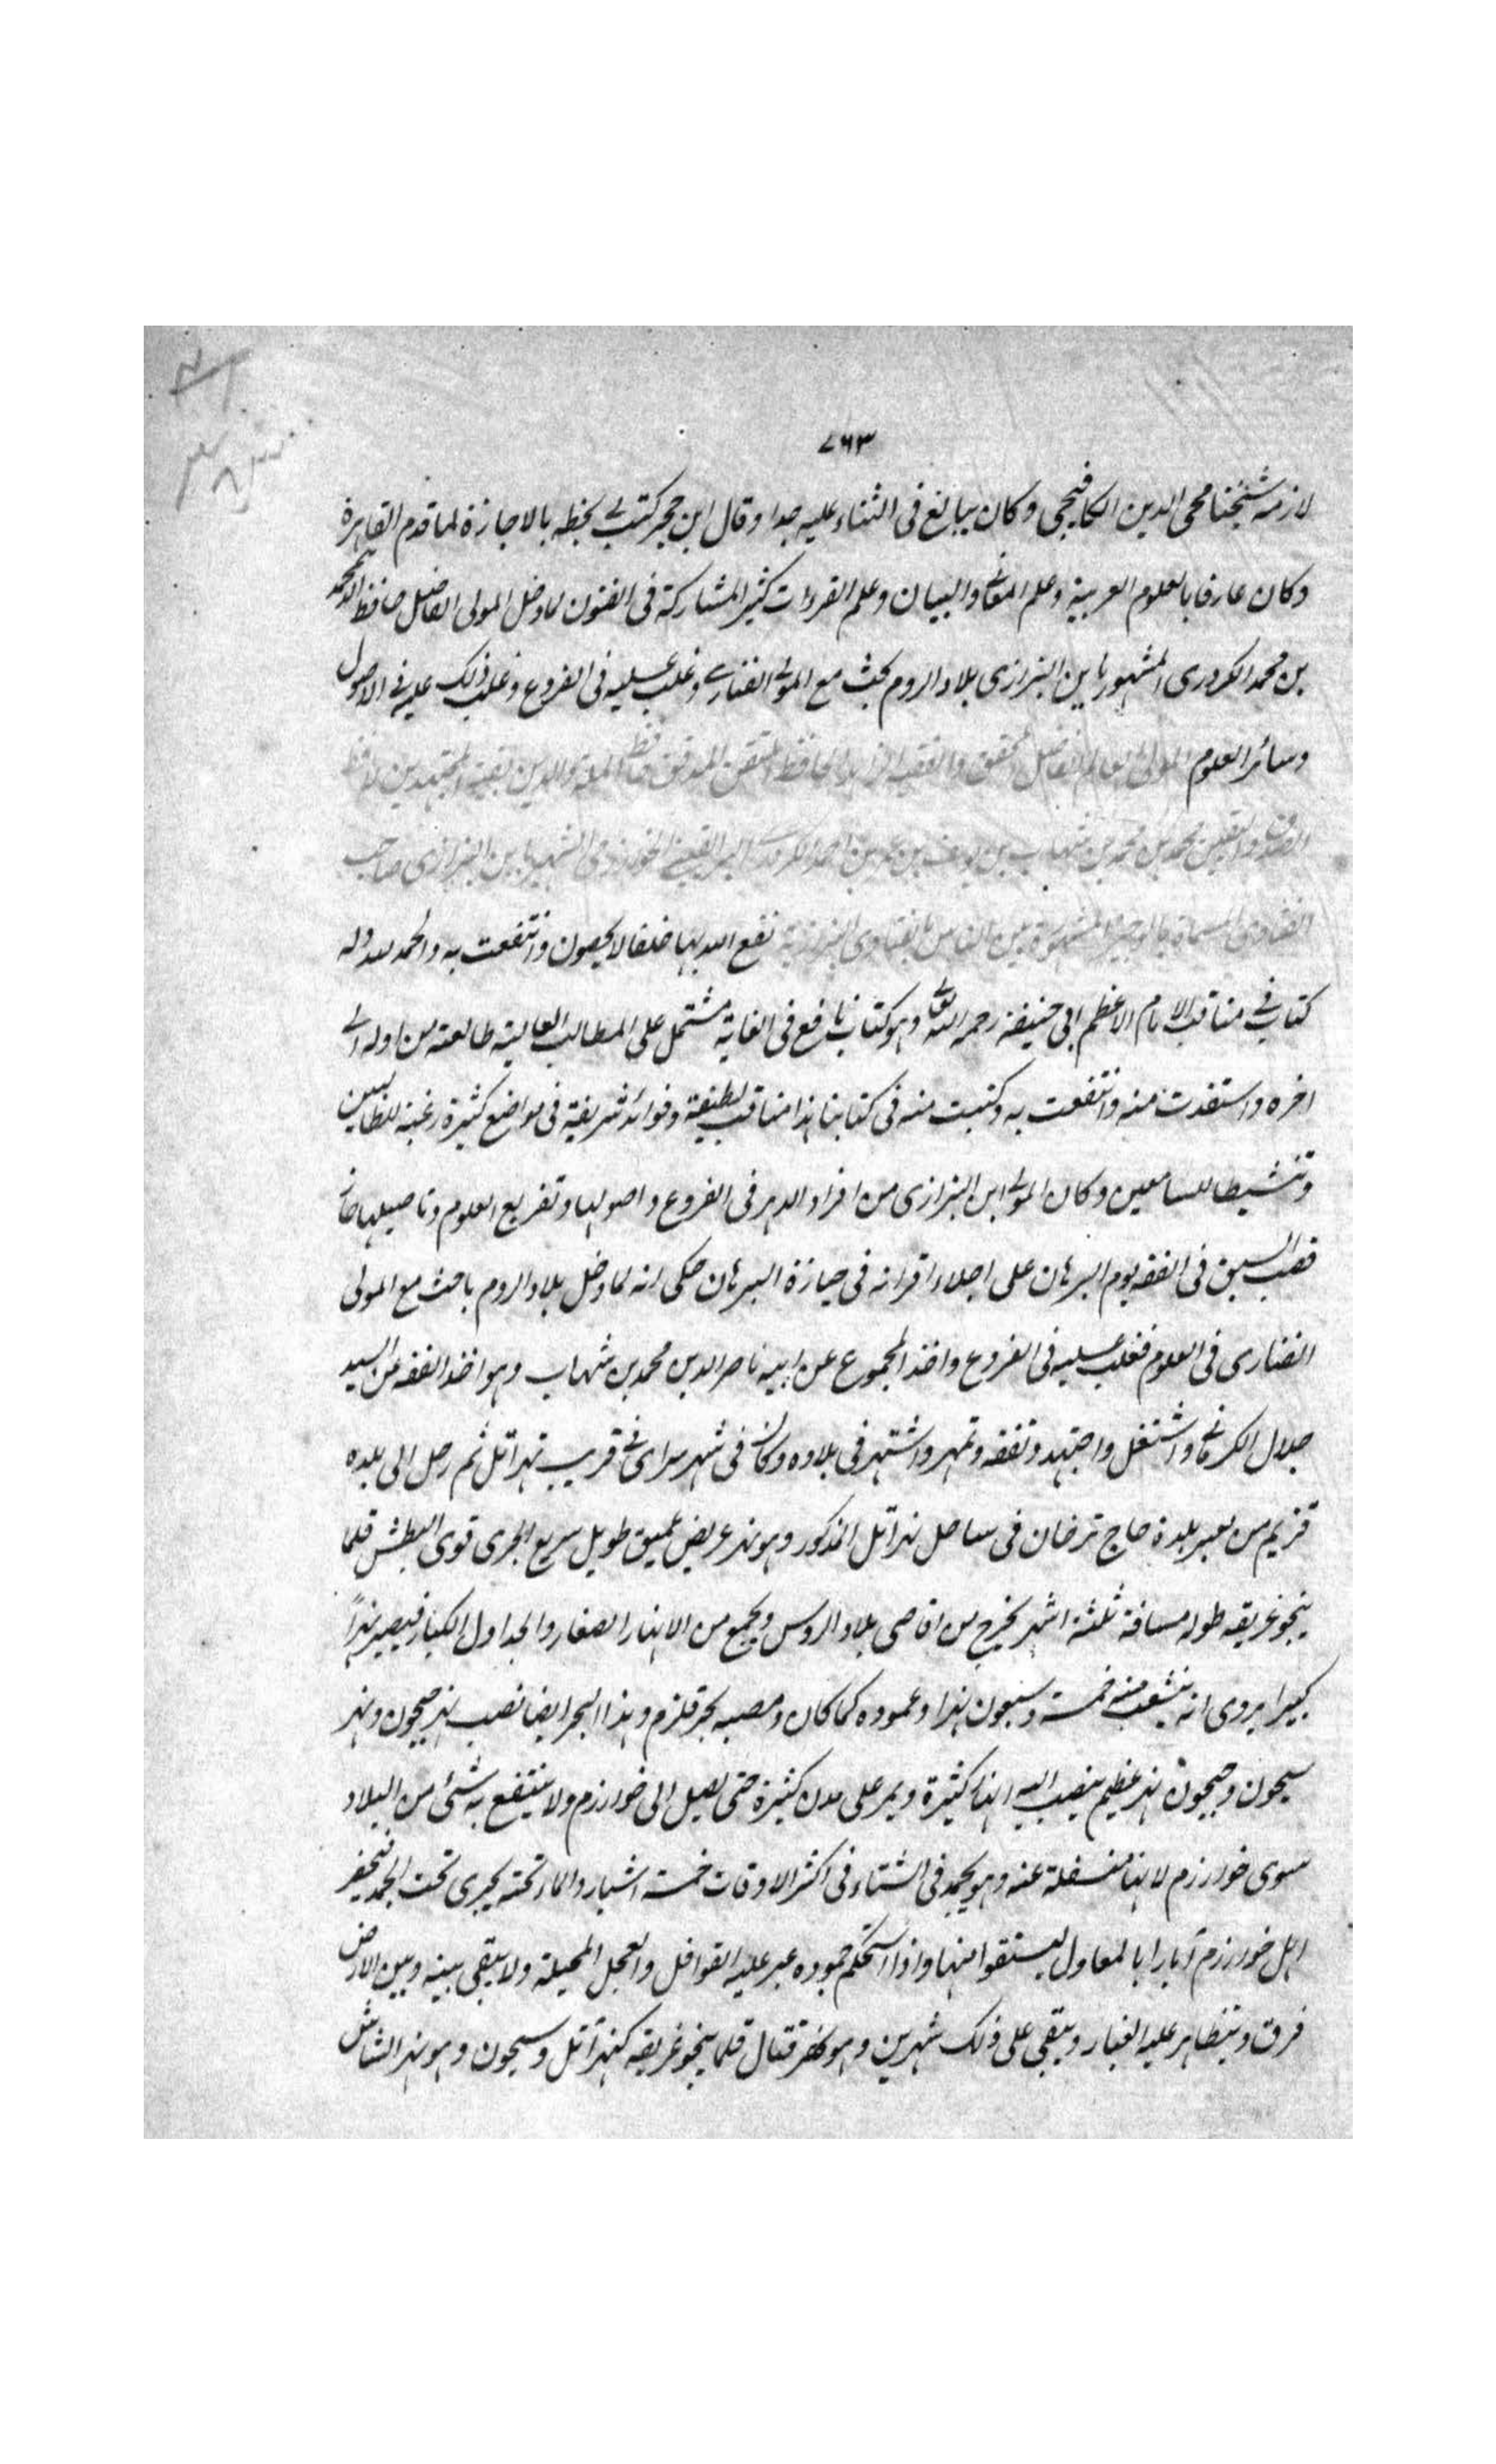 ٧٦٣
لازمه شيخنا محى الدين الكافيجى وكان يبالغ فى الثناء عليه جدا وقال ابن حجر كتب لى بخطه بالاجازة لما قدم القاهرة
وكان عارفا بالعلوم العربية وعلم المعانى والبيان وعلم القراءات كثير المشاركة فى الفنون لما دخل المولى الفاضل حافظ الدين محمد
بن محمد الكردرى المشهور بابن البزازى بلاد الروم بحث مع المولى الفنارى وغلب عليه فى الفروع وغلب ذلك عليه فى الاصول
وسائر العلوم المولى العالم الفاضل المحقق والفقيه الحافظ المتقن المدقق حافظ الملة والدين بقية المجتهدين
محمد بن محمد بن شهاب بن يوسف بن عمر بن احمد الكردرى البرايقينى الخوارزمى الشهير بابن البزازى صاحب
الفتاوى المسماة بالوجيز المشهورة بين الناس بالفتاوى البزازية نفع الله بها خلقا لا يحصون وانتفعت به والحمد لله وله
كتاب فى مناقب الامام الاعظم ابى حنيفة رحمه الله تعالى وهو كتاب نافع فى الغاية مشتمل على المطالب العالية طالعته من اوله الى
اخره واستفدت منه وانتفعت به وكتبت منه فى كتابنا هذا مناقب لطيفة وفوائد شريفة فى مواضع كثيرة رغبة للطالبين
وتنشيطا للسامعين وكان المولى ابن البزازى من افراد الدهر فى الفروع واصولها وتفريع العلوم وتاصيلها حاز
قصب السبق فى الفقه يوم البرهان على اجلاء اقرانه فى حيازة البرهان حكى انه لما دخل بلاد الروم باحث مع المولى
الفنارى فى العلوم فغلب عليه فى الفروع واخذ المجموع عن ابيه ناصر الدين محمد بن شهاب وهو اخذ الفقه عن السيد
جلال الكرلانى واشتغل واجتهد وتفقه وتمهر واشتهر فى بلاده وكان فى شهر سراى فى قريب نهر اتل ثم رحل الى بلده
قزيم من بعبر بلدة حاج ترخان فى ساحل نهر اتل المذكور وهو نهر عريض عميق طويل سريع الجرى قوى البطش قلما
ينجو غريقه طوله مسافة ثلثة اشهر يخرج من اقاصى بلاد الروس ويجمع من الانهار الصغار والجداول الكبار فيصير نهراً
كبيرا يروى انه ينشعب منه خمسة وسبعون نهرا وعموده كما كان ومصبه بحر قلزم وهذا البحر ايضا نصب نهر جيحون ونهر
سيحون وجيحون نهر عظيم ينصب اليه انهار كثيرة ويمر على مدن كثيرة حتى يصل الى خوارزم ولا ينتفع به شئ من البلاد
سوى خوارزم لانها مستفلة عنه وهو يجمد فى الشتاء فى اكثر الاوقات خمسة اشبار والماء تحته يجرى تحت الجمد فيحفر
اهل خوارزم آبارا بالمعاول ليستقوا منها واذا استحكم جموده عبر عليه القوافل والعجل المحملة ولا يبقى بينه وبين الارض
فرق ويتظاهر عليه الغبار ويبقى على ذلك شهرين وهو نهر قتال قلما ينجو غريقه كنهر اتل وسيحون وهو نهر الشاش